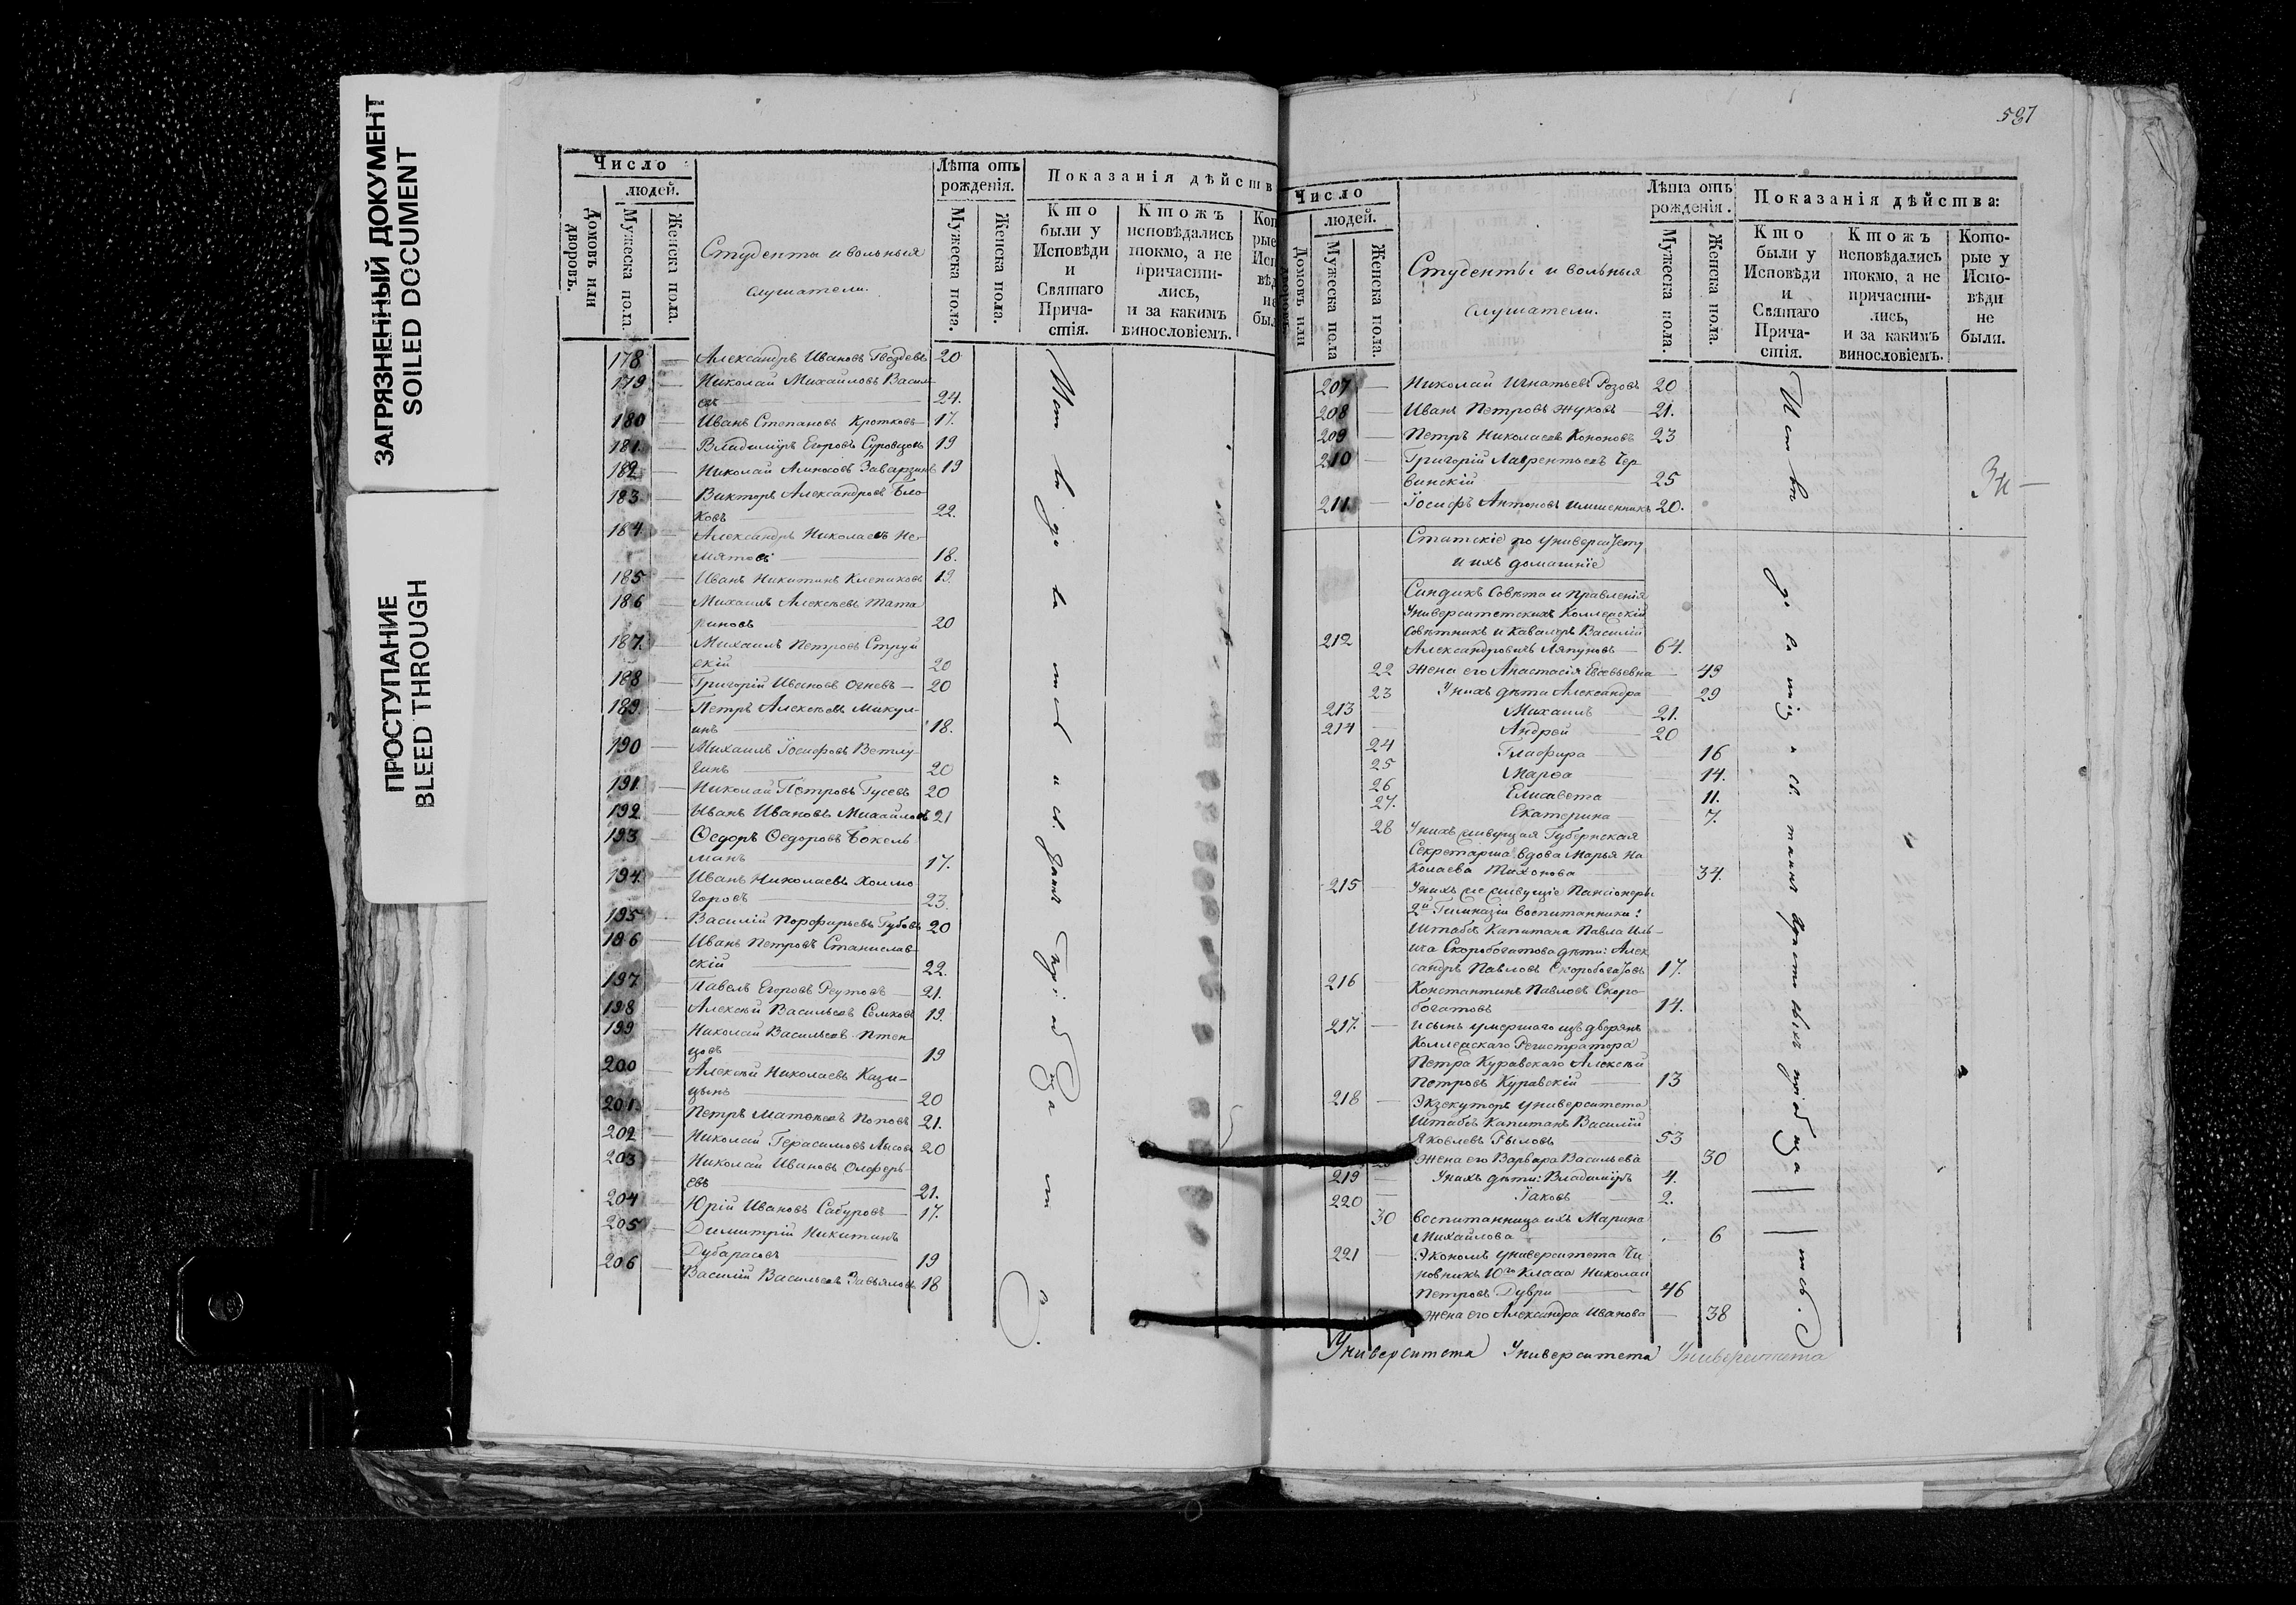 ЗАГРЯЗНЕННЫЙ ДОКУМЕНТ
SOILED DOCUMENT
ПРОСТУПАНИЕ
BLEED THROUGH
Число
людей.
Домовъ или дворовъ.
Мужеска пола.
Женска пола.
Студенты и вольныя
слушатели.
Лѣта отъ
рожденія.
Мужеска пола.
Женска пола.
Показанія дѣйств
Кто
были у
Исповѣди
и
Святаго
Прича-
стія.
Ктожъ
исповѣдались
токмо, а не
причасти-
лись,
и за какимъ
винословіемъ.
178 Александръ Ивановъ Гвоздевъ 20
179 Николай Михайловъ Василь-
евъ 24.
180 Иванъ Степановъ Кротковъ 17.
181. Владимиръ Егоровъ Суровцовъ 19
182 Николай Амносовъ Заварзинъ 19
183. Викторъ Александровъ Бло-
ковъ 22.
184. Александръ Николаевъ Не-
мятовъ 18.
185 Иванъ Никитинъ Клепиковъ 19.
186 Михаилъ Алексѣевъ Тата
риновъ 20
187. Михаилъ Петровъ Струй
скій 20
188 Григорій Ивановъ Огневъ 20
189. Петръ Алексѣевъ Микул-
инъ 18.
190 Михаилъ Іосифовъ Ветлу-
гинъ 20
191. Николай Петровъ Гусевъ 20
192 Иванъ Ивановъ Михайловъ 21
193 Ѳедоръ Ѳедоровъ Бокель
манъ 17.
194. Иванъ Николаевъ Холмо
горовъ 23.
195 Василій Порфирьевъ Губовъ 20
196 Иванъ Петровъ Станислав-
скій 22.
197 Павелъ Егоровъ Реутовъ 21.
198 Алексѣй Васильевъ Семковъ 19.
199 Николай Васильевъ Птен-
цовъ 19
200 Алексѣй Николаевъ Кази-
цынъ 20
201. Петръ Матвѣевъ Поповъ 21.
202 Николай Герасимовъ Лысовъ 20
203 Николай Ивановъ Олферь-
евъ 21.
204 Юрій Ивановъ Сабуровъ 17.
205 Димитрій Никитинъ
Дубарасовъ 19
206 Василій Васильевъ Завьяловъ 18
Число
людей.
Домовъ или
Мужеска пола
Женска пола.
Студенты и вольныя
слушатели.
Лѣта отъ
рожденія.
Мужеска пола.
Женска пола.
Показанія дѣйства:
Кто
были у
Исповѣди
и
Святаго
Прича-
стія.
Ктожъ
исповѣдались
токмо, а не
причасти-
лись,
и за какимъ
винословіемъ.
Кото-
рые у
Испо-
вѣди
не
были.
207 Николай Игнатьевъ Розовъ 20
208 Иванъ Петровъ Жуковъ 21.
209 Петръ Николаевъ Кононовъ 23
210 Григорій Лаврентьевъ Чер
винскій 25
211. Іосифъ Антоновъ 20.
Статскіе по университету
и ихъ домашніе
Синдикъ Совѣта и Правленія
Университетскихъ Коллежскій
Совѣтникъ и Кавалеръ Василій
212 Александровичъ Ляпуновъ 64.
22 Жена его Анастасія Евсевьевна 49
23 У нихъ дѣти Александра 29
213 Михаилъ 21.
214 Андрей 20
24 Глафира 16
25 Марѳа 14.
26 Елисавета 11.
27. Екатерина 7.
28 У нихъ живущая Губернская
Секретарша вдова Марья Ни
колаева Тихонова 34.
215 У нихъ же живущіе Пансіонеры
2й Гимназіи воспитанники:
Штабсъ Капитана Павла Иль-
ича Скоробогатова дѣти: Алек
сандръ Павловъ Скоробогатовъ 17.
216 Константинъ Павловъ Скоро-
богатовъ 14.
217. и сынъ умершаго изъ дворянъ
Коллежскаго Регистратора
Петра Куравскаго Алексѣй
Петровъ Куравскій 13
218 Экзекуторъ университета
Штабсъ Капитанъ Василій
Яковлевъ Рыловъ 53
Жена его Варвара Васильева 30
219 У нихъ дѣти: Владимиръ 4.
220 Іаковъ 2.
30 воспитанница ихъ Марина
Михайлова 6
221 Экономъ университета Чи
новникъ 10го Класса Николай
Петровъ Дубри 46
Жена его Александра Иванова 38
Университета Университета Университета